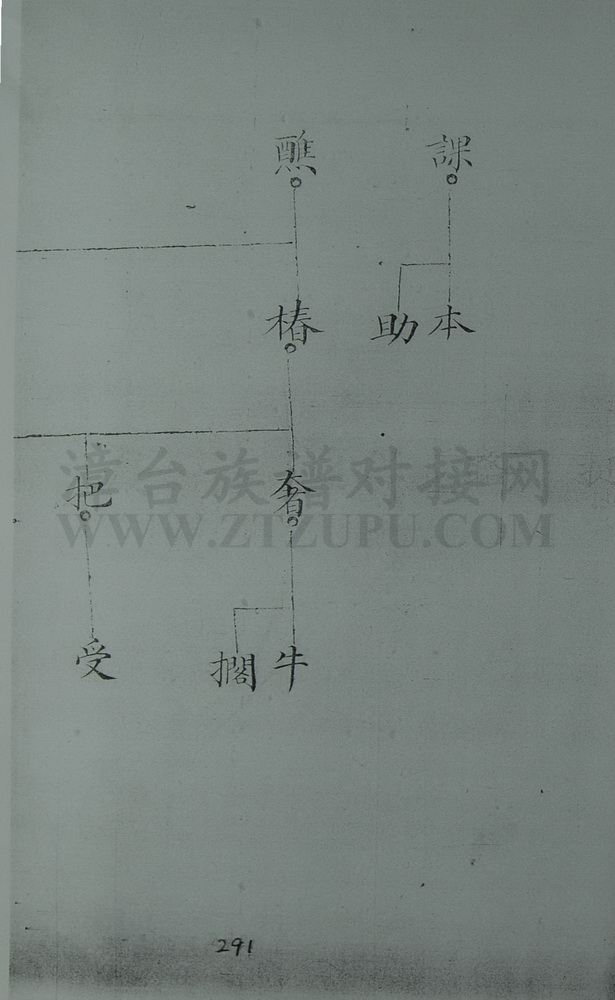 課 醮
本 助 椿
奢 把
牛 擱 受
漳台族谱对接网
WWW.ZTZUPU.COM
291